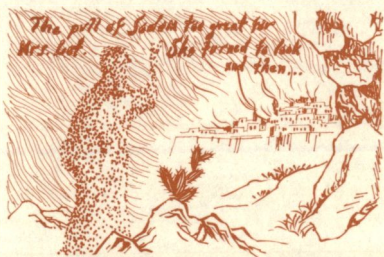 The pull of Sodom too great for
Mrs. Lot. She turned to look
and then...